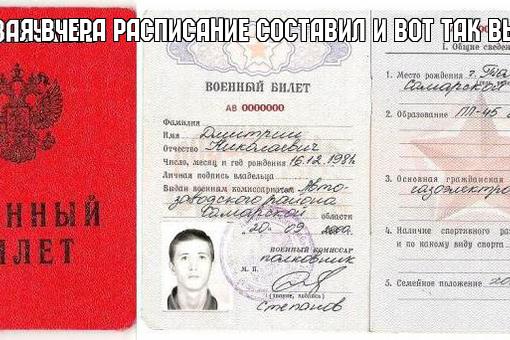 ВАЯ ВЧЕРА РАСПИСАНИЕ СОСТАВИЛ И ВОТ ТАК ВЫ
ЕННЫЙ
ИЛЕТ
ВОЕННЫЙ БИЛЕТ
АВ 0000000
Фамилия
Имя Дмитрий
Отчество Николаевич
Число, месяц и год рождения 16.12.198
Личная подпись владельца
Выдан военным комиссариатом Авто-
заводского района
Самарской области
20. 09
ВОЕННЫЙ КОМИССАР
полковник
М. П.
(звание, подпись)
Степанов
I. Общие сведен
1. Место рождения г.
Самарской
2. Образование ПЛ-45
3. Основная гражданская
газоэлектро
4. Наличие спортивного раз
и по какому виду спорта
5. Семейное положение хо